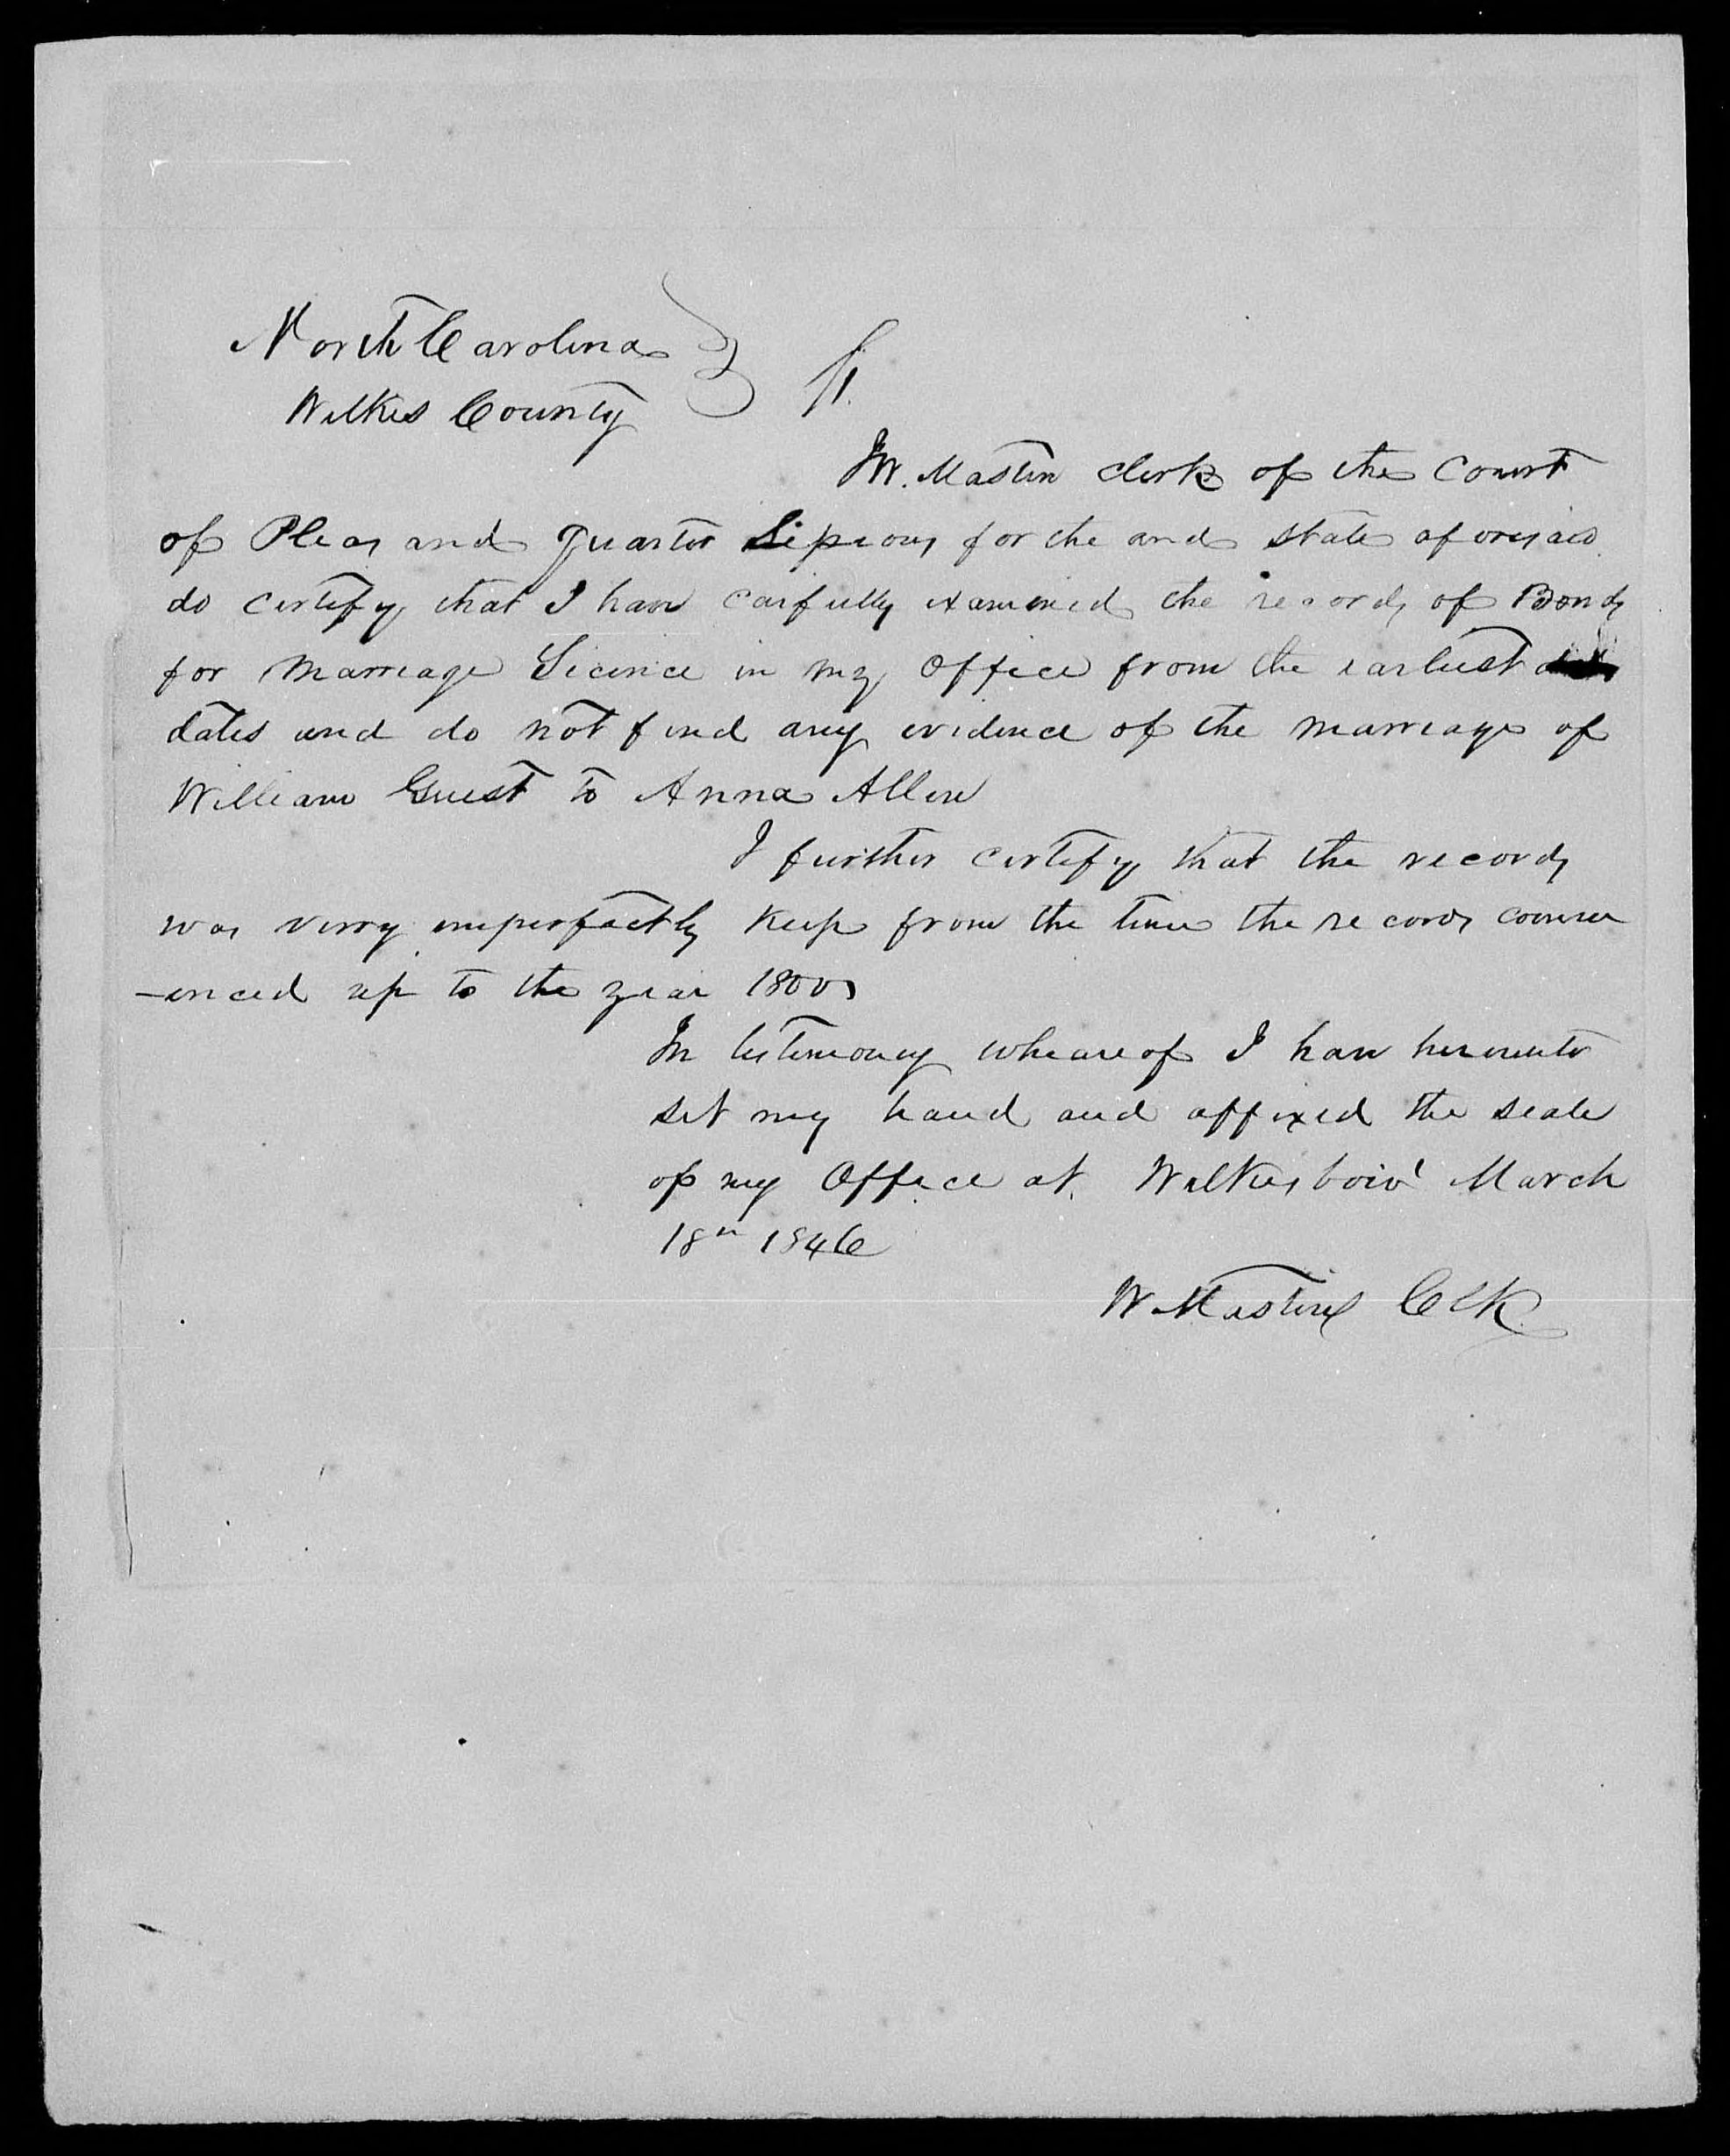 North Carolina
Wilkes County } Ss.
I W. Mastin Clerk of the Court
of Pleas and Quarter Sessions for the and State aforesaid
do certify that I have carfully examined the records of Bonds
for Marriage Licence in my Office from the earliest
dates and do not find any evidence of the marriage of
William Guest to Anna Allen
I further certify that the records
was verry imperfectly keep from the time the records comm
-enced up to the year 1800
In testimony wheareof I have hereunto
set my hand and affixed the seale
of my Office at Wilkesboro' March
18th 1846
W Mastin Clk